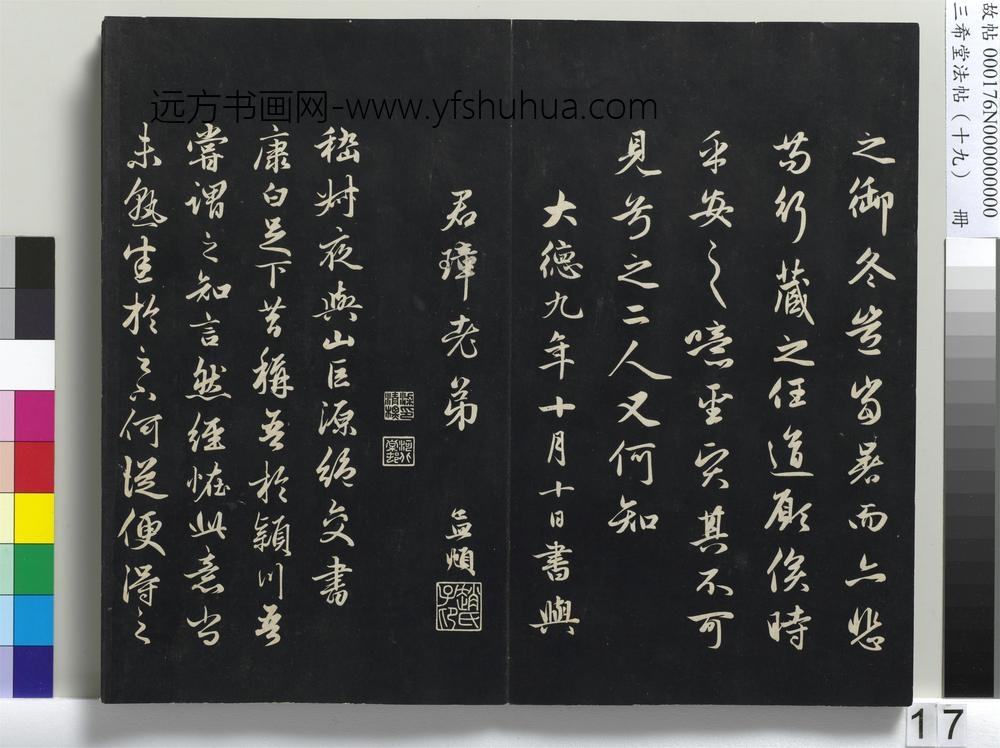 故帖 000176N000000000
三希堂法帖（十九） 冊
远方书画网-www.yfshuhua.com
之御冬豈當暑而亦悲
苟行藏之任道顧俟時
乎安之噫聖其不可
見兮之二人又何知
大德九年十月十日書與
君璋老弟 孟頫
趙氏子印
嵇叔夜與山巨源絕交書
康白足下昔稱吾於潁川吾
嘗謂之知言然經怪此意尚
未熟悉於足下何從便得之
17